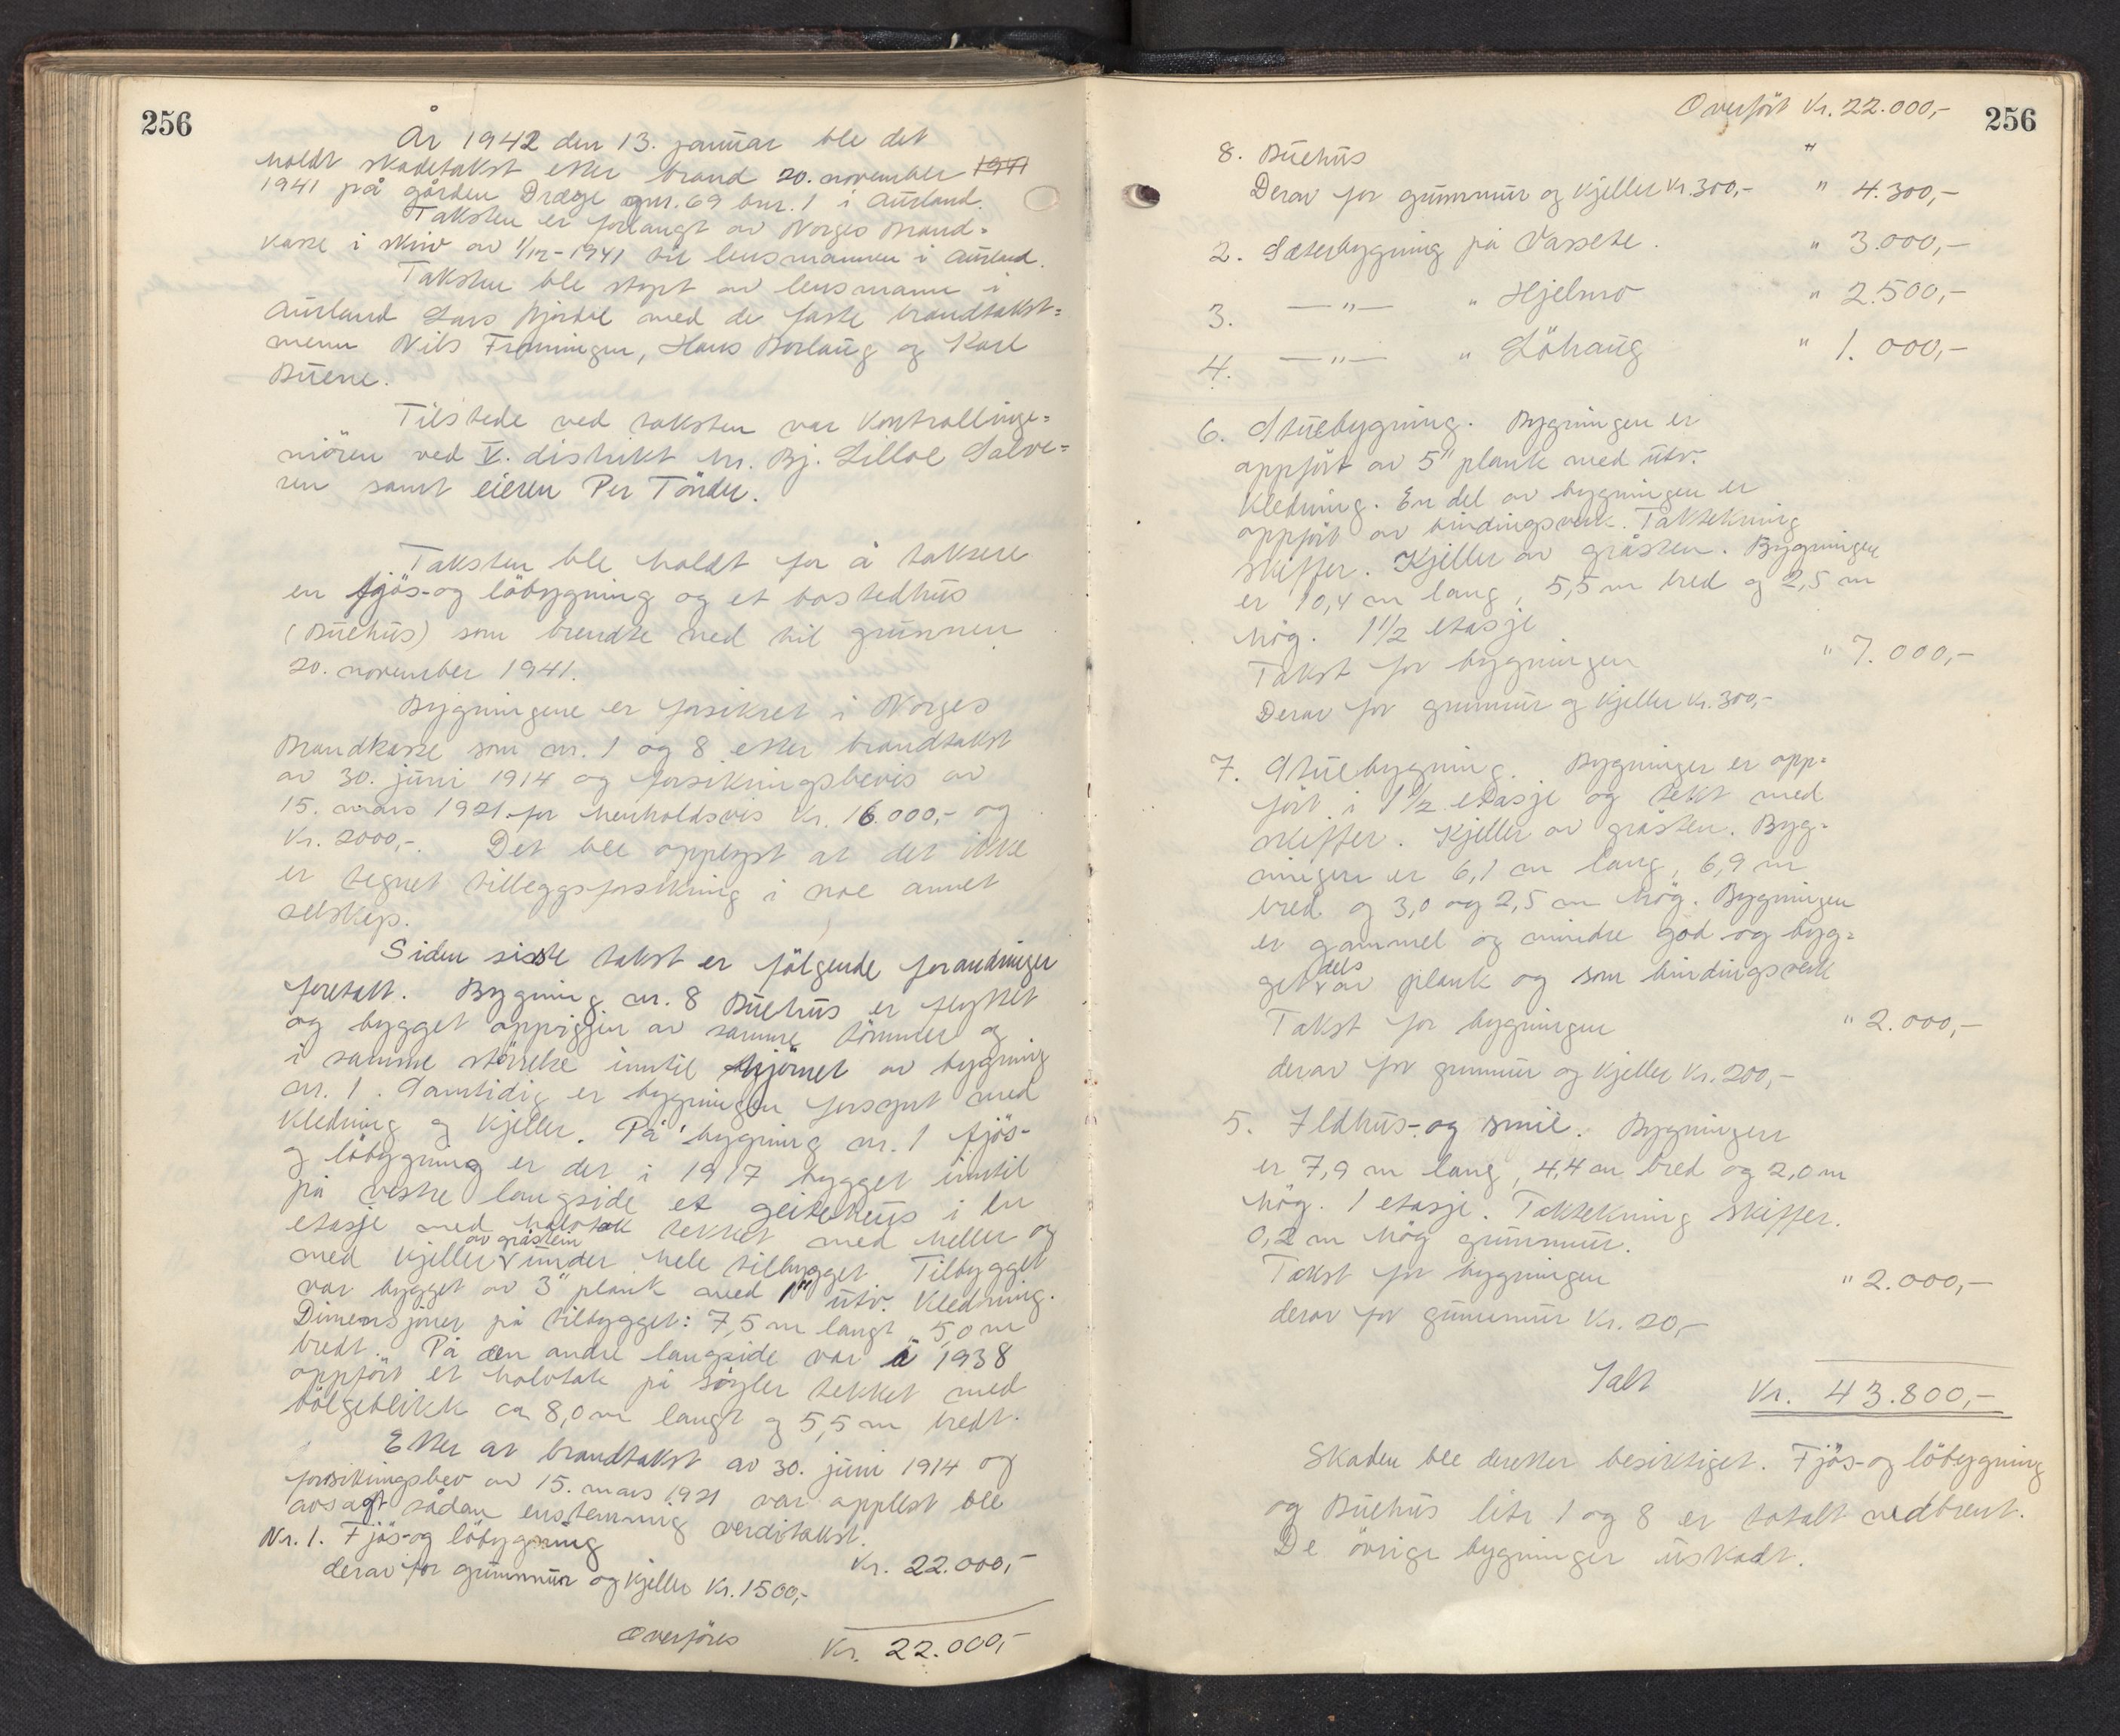 256
År 1942 den 13. januar ble det
holdt skadetakst etter brand 20. november 1941
1941 på gården Dræge gnr. 69 bnr. 1 i Aurland.
Taksten er forlangt av Norges Brand-
kasse i skriv av 1/12-1941 til lensmannen i Aurland.
Taksten ble styrt av lensmann i
Aurland Lars med de faste brandtakst=
menn Nils Frøningen, Hans Borlaug og Karl
Buene.
Tilstede ved taksten var Kontrollinge=
niören ved V. distrikt hr. Bj. Lilloe Salve=
sen samt eieren Per Tönder.
Taksten ble holdt for å taksere
en fjös- og löbygning og et bostedhus
(Buehus) som brendte ned til grunnen
20. november 1941.
Bygningene er forsikret i Norges
Brandkasse som nr. 1 og 8 etter brandtakst
av 30. juni 1914 og forsikringsbevis av
15. mars 1921 for henholdsvis Kr. 16.000,- og
Kr. 2000,-. Det ble opplyst at det ikke
er tegnet tilleggsforsikring i noe annet
selskap.
Siden siste takst er fölgende forandringer
foretatt. Bygning nr. 8 Buehus er flyttet
og bygget oppigjen av samme tömmer og
i samme störrelse inntil hjörnet av bygning
nr. 1. Samtidig er bygningen forsynt med
kledning og kjeller. På bygning nr. 1 fjös-
og löbygning er det i 1917 bygget inntil
på vestre langside et geitehus i en
etasje med halvtak tekket med heller og
med kjeller av gråstein under hele tilbygget. Tilbygget
var bygget av 3" plank med 1" utv. kledning.
Dimensjoner på tilbygget: 7,5 m langt, 5,0 m
bredt. På den andre langside var i 1938
oppfört et halvtak på söyler tekket med
bölgeblikk ca 8,0 m langt og 5,5 m bredt.
Etter at brandtakst av 30. juni 1914 og
forsikringsbev av 15. mars 1921 var opplest ble
avsagt sådan enstemmig verditakst.
Nr. 1. Fjös- og löbygning Kr. 22.000,-
derav for grunnmur og kjeller Kr. 1500,-
Overföres Kr. 22.000,-
256
Overfört Kr. 22.000,-
8. Buehus "
Derav for grunnmur og kjeller Kr. 300,- " 4.300,-
2. Sæterbygning på Vassete. " 3.000,-
3. —"— " Hjelmo " 2.500,-
4. —"— " Löhaug " 1.000,-
6. Stuebygning. Bygningen er
oppfört av 5" plank med utv.
kledning. En del av bygningen er
oppfört av bindingsverk. Taktekning
skiffer. Kjeller av gråsten. Bygningen
er 10,4 m lang, 5,5 m bred og 2,5 m
hög. 1 1/2 etasje
Takst for bygningen " 7.000,-
Derav for grunnmur og kjeller Kr. 300,-
7. Stuebygning. Bygningen er opp=
fört i 1 1/2 etasje og tekt med
skiffer. Kjeller av gråsten. Byg-
ningen er 6,1 m lang, 6,9 m
bred og 3,0 og 2,5 m hög. Bygningen
er gammel og mindre god og byg=
get dels av plank og som bindingsverk
Takst for bygningen " 2.000,-
derav for grunnmur og kjeller Kr. 200,-
5. Ildhus- og smie. Bygningen
er 7,9 m lang, 4,4 m bred og 2,0 m
hög. 1 etasje. Taktekning skiffer.
0,2 m hög grunnmur.
Takst for bygningen " 2.000,-
derav for grunnmur Kr. 20,-
Ialt Kr. 43.800,-
Skaden ble deretter besiktiget. Fjös- og löbygning
og Buehus litr 1 og 8 er totalt nedbrent.
De övrige bygninger uskadt.